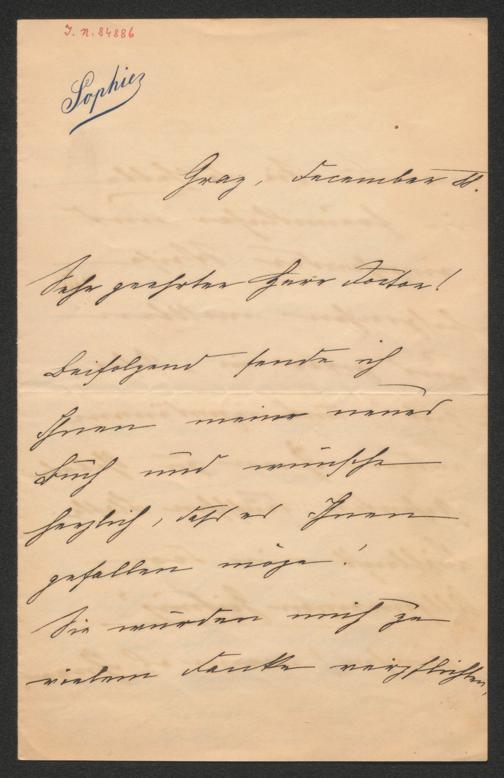 J. N. 84886
Sophie
Graz, December 88.
Sehr geehrter Herr Doctor!
Beifolgend sende ich
Ihnen mein neues
Buch und wünsche
herzlich, dass es Ihnen
gefallen möge!
Sie würden mich zu
vielem Danke verpflichten,